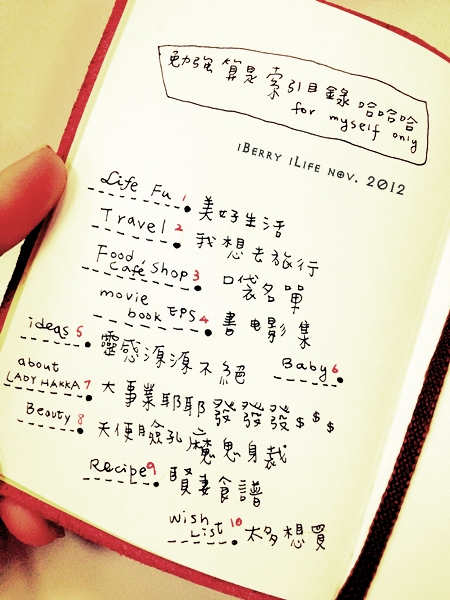 勉強 算是 索引目錄 哈哈哈
for myself only
iBerry iLife nov. 2012
Life Fu 1 美好生活
Travel 2 我想去旅行
Food, Café, Shop 3 口袋名單
movie book EPS 4 書電影集
ideas 5 靈感源源不絕
Baby 6
about LADY HAKKA 7 大事業耶耶發發發$ $ $
Beauty 8 天使臉孔魔鬼身裁
Recipe 9 賢妻食譜
wish List 10 太多想買